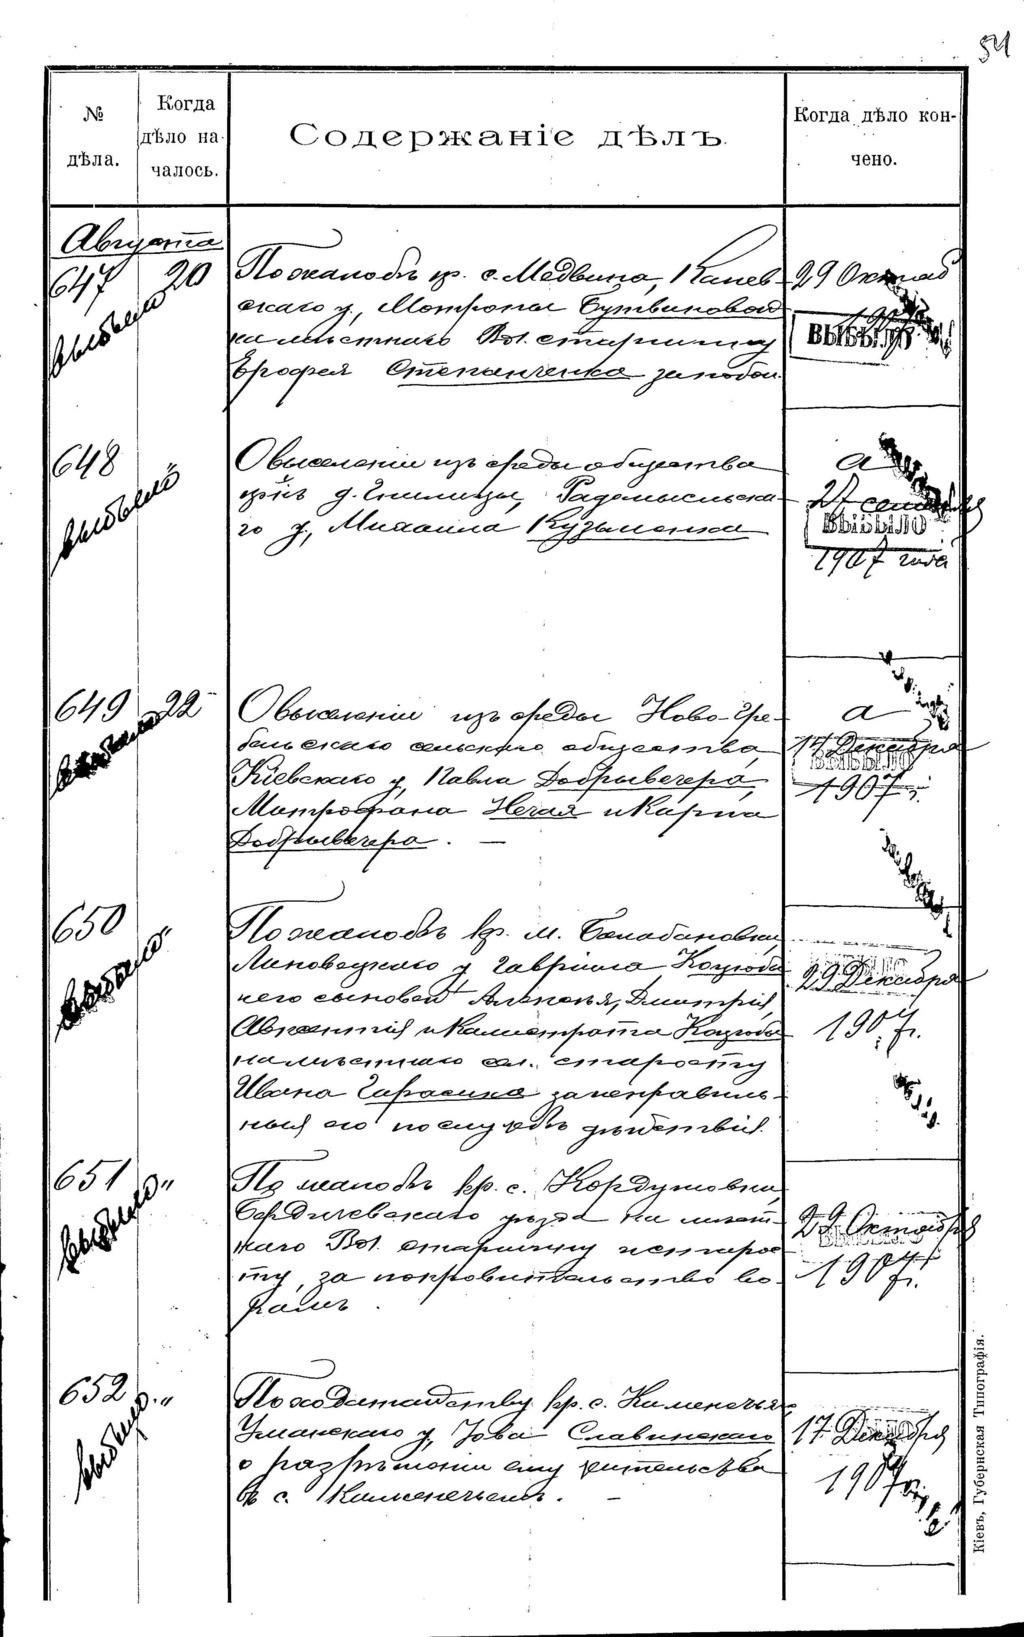 54
№ дѣла.
Когда дѣло началось.
Содержаніе дѣлъ.
Когда дѣло кончено.
Августа
647
20
выбыло
По жалобѣ кр. с. Медвина, Канев-
скаго у, Мотроны Бутвиновой
на мѣстнаго Вол. старшину
Ерофея Степанченка за побои.
29 Октяб
1907
ВЫБЫЛО
648
"
выбыло
О выселеніи изъ среды общества
кр-нъ д. Гнилицы, Радомысльска-
го у, Михаила Кузьменка
а
27 сентября
ВЫБЫЛО
1907 года
649
22
выбыло
О выселеніи изъ среды Ново-Гре-
бельскаго сельскаго общества,
Кіевскаго у, Павла Добрывечера,
Митрофана Нечая и Карпа
Добрывечера. —
а
17 Декабря
ВЫБЫЛО
1907 г.
650
"
выбыло
По жалобѣ кр. м. Балабановки,
Липовецкаго у Гавріила Коцюба
и его сыновей Алексѣя, Дмитрія,
Авксентія и Калистрата Коцюба
на мѣстнаго сел. старосту
Ивана Гарасика за неправиль-
ныя его по службѣ дѣйствія.
29 Декабря
1907 г.
651
"
выбыло
По жалобѣ кр. с. Кордышовки,
Бердичевскаго уѣзда на мѣст-
наго Вол. старшину и старос-
ту, за покровительство во-
рамъ.
29 Октября
1907 г.
652
"
выбыло
По ходатайству кр. с. Каменечья,
Уманскаго у, Іова Славинскаго
о разрѣшеніи ему жительства
въ с. Каменечьемъ. —
17 Декабря
1907 г.
Кіевъ, Губернская Типографія.